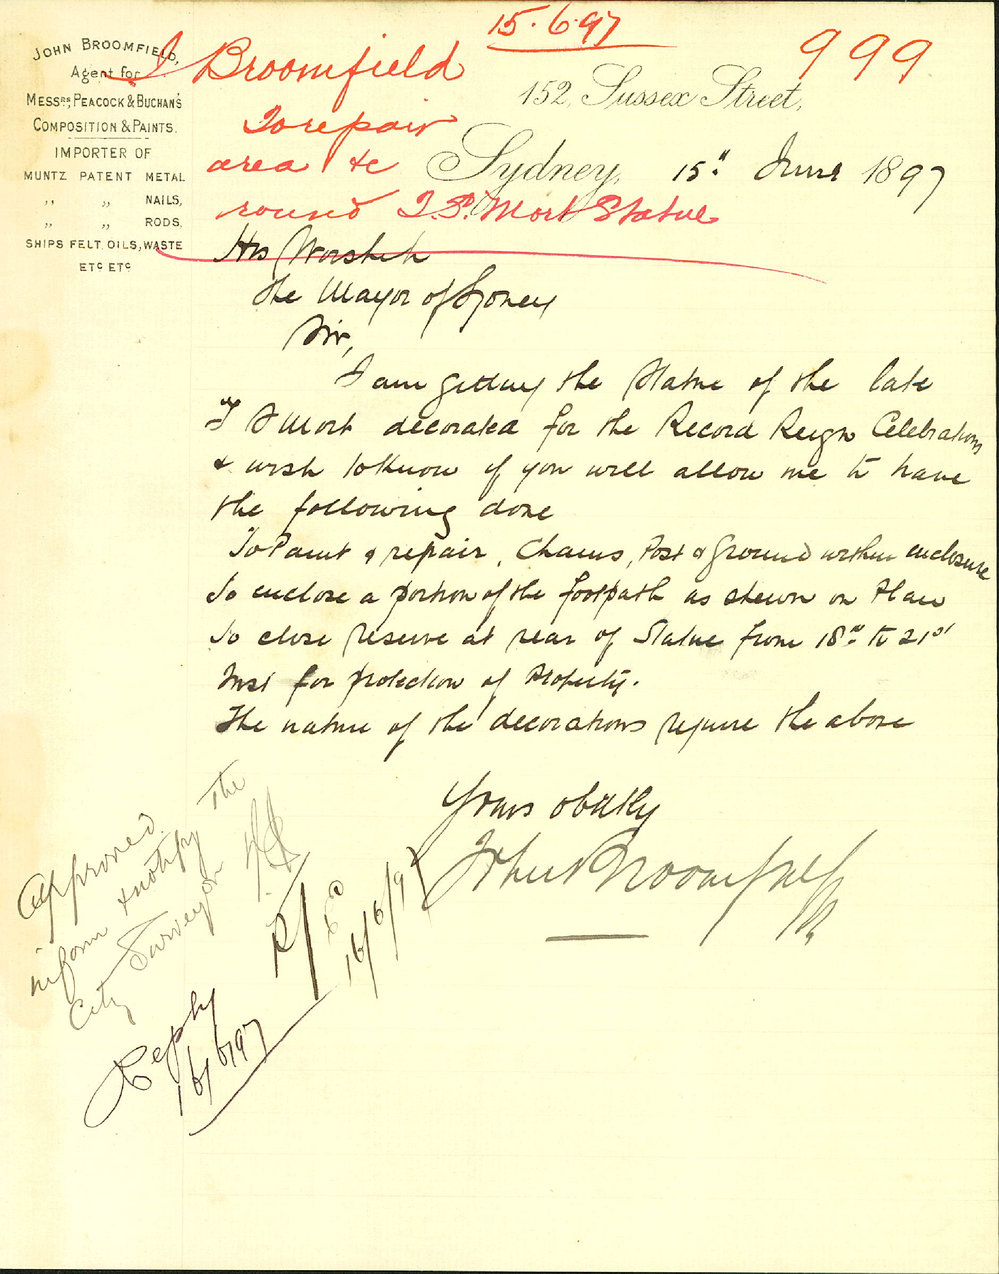 15.6.97
999
JOHN BROOMFIELD,
Agent for
MESSRS, PEACOCK & BUCHAN'S
COMPOSITION & PAINTS.
IMPORTER OF
MUNTZ PATENT METAL
,, ,, NAILS,
,, ,, RODS,
SHIPS FELT, OILS, WASTE
ETC ETC
J Broomfield
To repair
area &c
round T.S. Mort Statue
152, Sussex Street,
Sydney, 15th June 1897
His Worship
the Mayor of Sydney
Sir,
I am getting the Statue of the late
T S Mort decorated for the Record Reign Celebrations
& wish to know if you will allow me to have
the following done
To Paint & repair, Chains, Post & Ground within enclosure
To enclose a portion of the footpath as shewn on Plan
To close reserve at rear of Statue from 18th to 21st
Inst for protection of Property.
The nature of the decorations require the above
Yours obdtly
John Broomfield
Approved
inform & notify the
City Surveyor
16/6/97
Reply
16/6/97